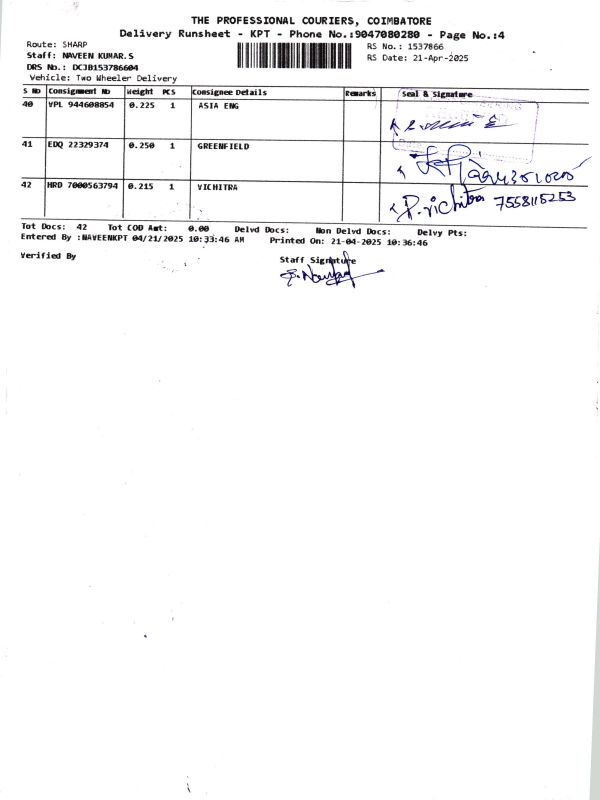 THE PROFESSIONAL COURIERS, COIMBATORE
Delivery Runsheet - KPT - Phone No.:9047080280 - Page No.:4
Route: SHARP
RS No.: 1537866
Staff: NAVEEN KUMAR.S
RS Date: 21-Apr-2025
DRS No.: DCJB153786604
Vehicle: Two Wheeler Delivery
S No Consignment No Weight PCS Consignee Details Remarks Seal & Signature
40 VPL 944608854 0.225 1 ASIA ENG
41 EDQ 22329374 0.250 1 GREENFIELD
42 HRD 7000563794 0.215 1 VICHITRA
P. vichitra 7558115253
Tot Docs: 42 Tot COD Amt: 0.00 Delvd Docs: Non Delvd Docs: Delvy Pts:
Entered By :NAVEENKPT 04/21/2025 10:33:46 AM Printed On: 21-04-2025 10:36:46
Verified By
Staff Signature